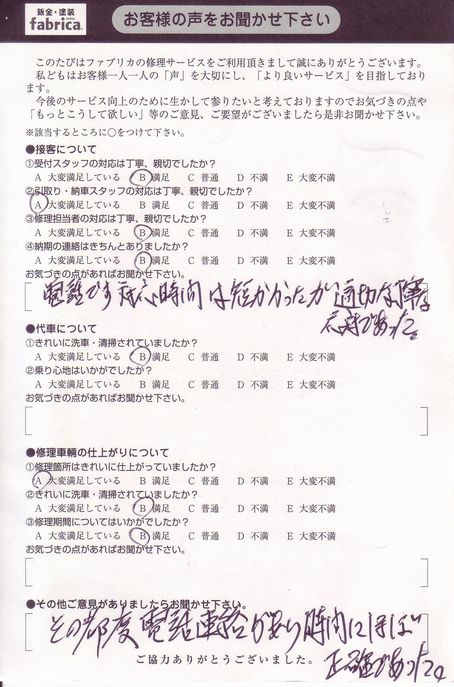 鈑金・塗装
fabrica.
お客様の声をお聞かせ下さい
このたびはファブリカの修理サービスをご利用頂きまして誠にありがとうございます。
私どもはお客様一人一人の「声」を大切にし、「より良いサービス」を目指しており
ます。
今後のサービス向上のために生かして参りたいと考えておりますのでお気づきの点や
「もっとこうして欲しい」等のご意見、ご要望がございましたら是非お聞かせ下さい。
※該当するところに○をつけて下さい。
●接客について
①受付スタッフの対応は丁寧、親切でしたか?
A 大変満足している B 満足 C 普通 D 不満 E 大変不満
②引取り・納車スタッフの対応は丁寧、親切でしたか?
A 大変満足している B 満足 C 普通 D 不満 E 大変不満
③修理担当者の対応は丁寧、親切でしたか?
A 大変満足している B 満足 C 普通 D 不満 E 大変不満
④納期の連絡はきちんとありましたか?
A 大変満足している B 満足 C 普通 D 不満 E 大変不満
お気づきの点があればお聞かせ下さい。
電話です 対応時間は短かかったが 適切な
応対であった。
●代車について
①きれいに洗車・清掃されていましたか?
A 大変満足している B 満足 C 普通 D 不満 E 大変不満
②乗り心地はいかがでしたか?
A 大変満足している B 満足 C 普通 D 不満 E 大変不満
お気づきの点があればお聞かせ下さい。
●修理車輌の仕上がりについて
①修理箇所はきれいに仕上がっていましたか?
A 大変満足している B 満足 C 普通 D 不満 E 大変不満
②きれいに洗車・清掃されていましたか?
A 大変満足している B 満足 C 普通 D 不満 E 大変不満
③修理期間についてはいかがでしたか?
A 大変満足している B 満足 C 普通 D 不満 E 大変不満
お気づきの点があればお聞かせ下さい。
●その他ご意見がありましたらお聞かせ下さい。
その都度 電話連絡が有り 時間にほぼ
正確であった。
ご協力ありがとうございました。